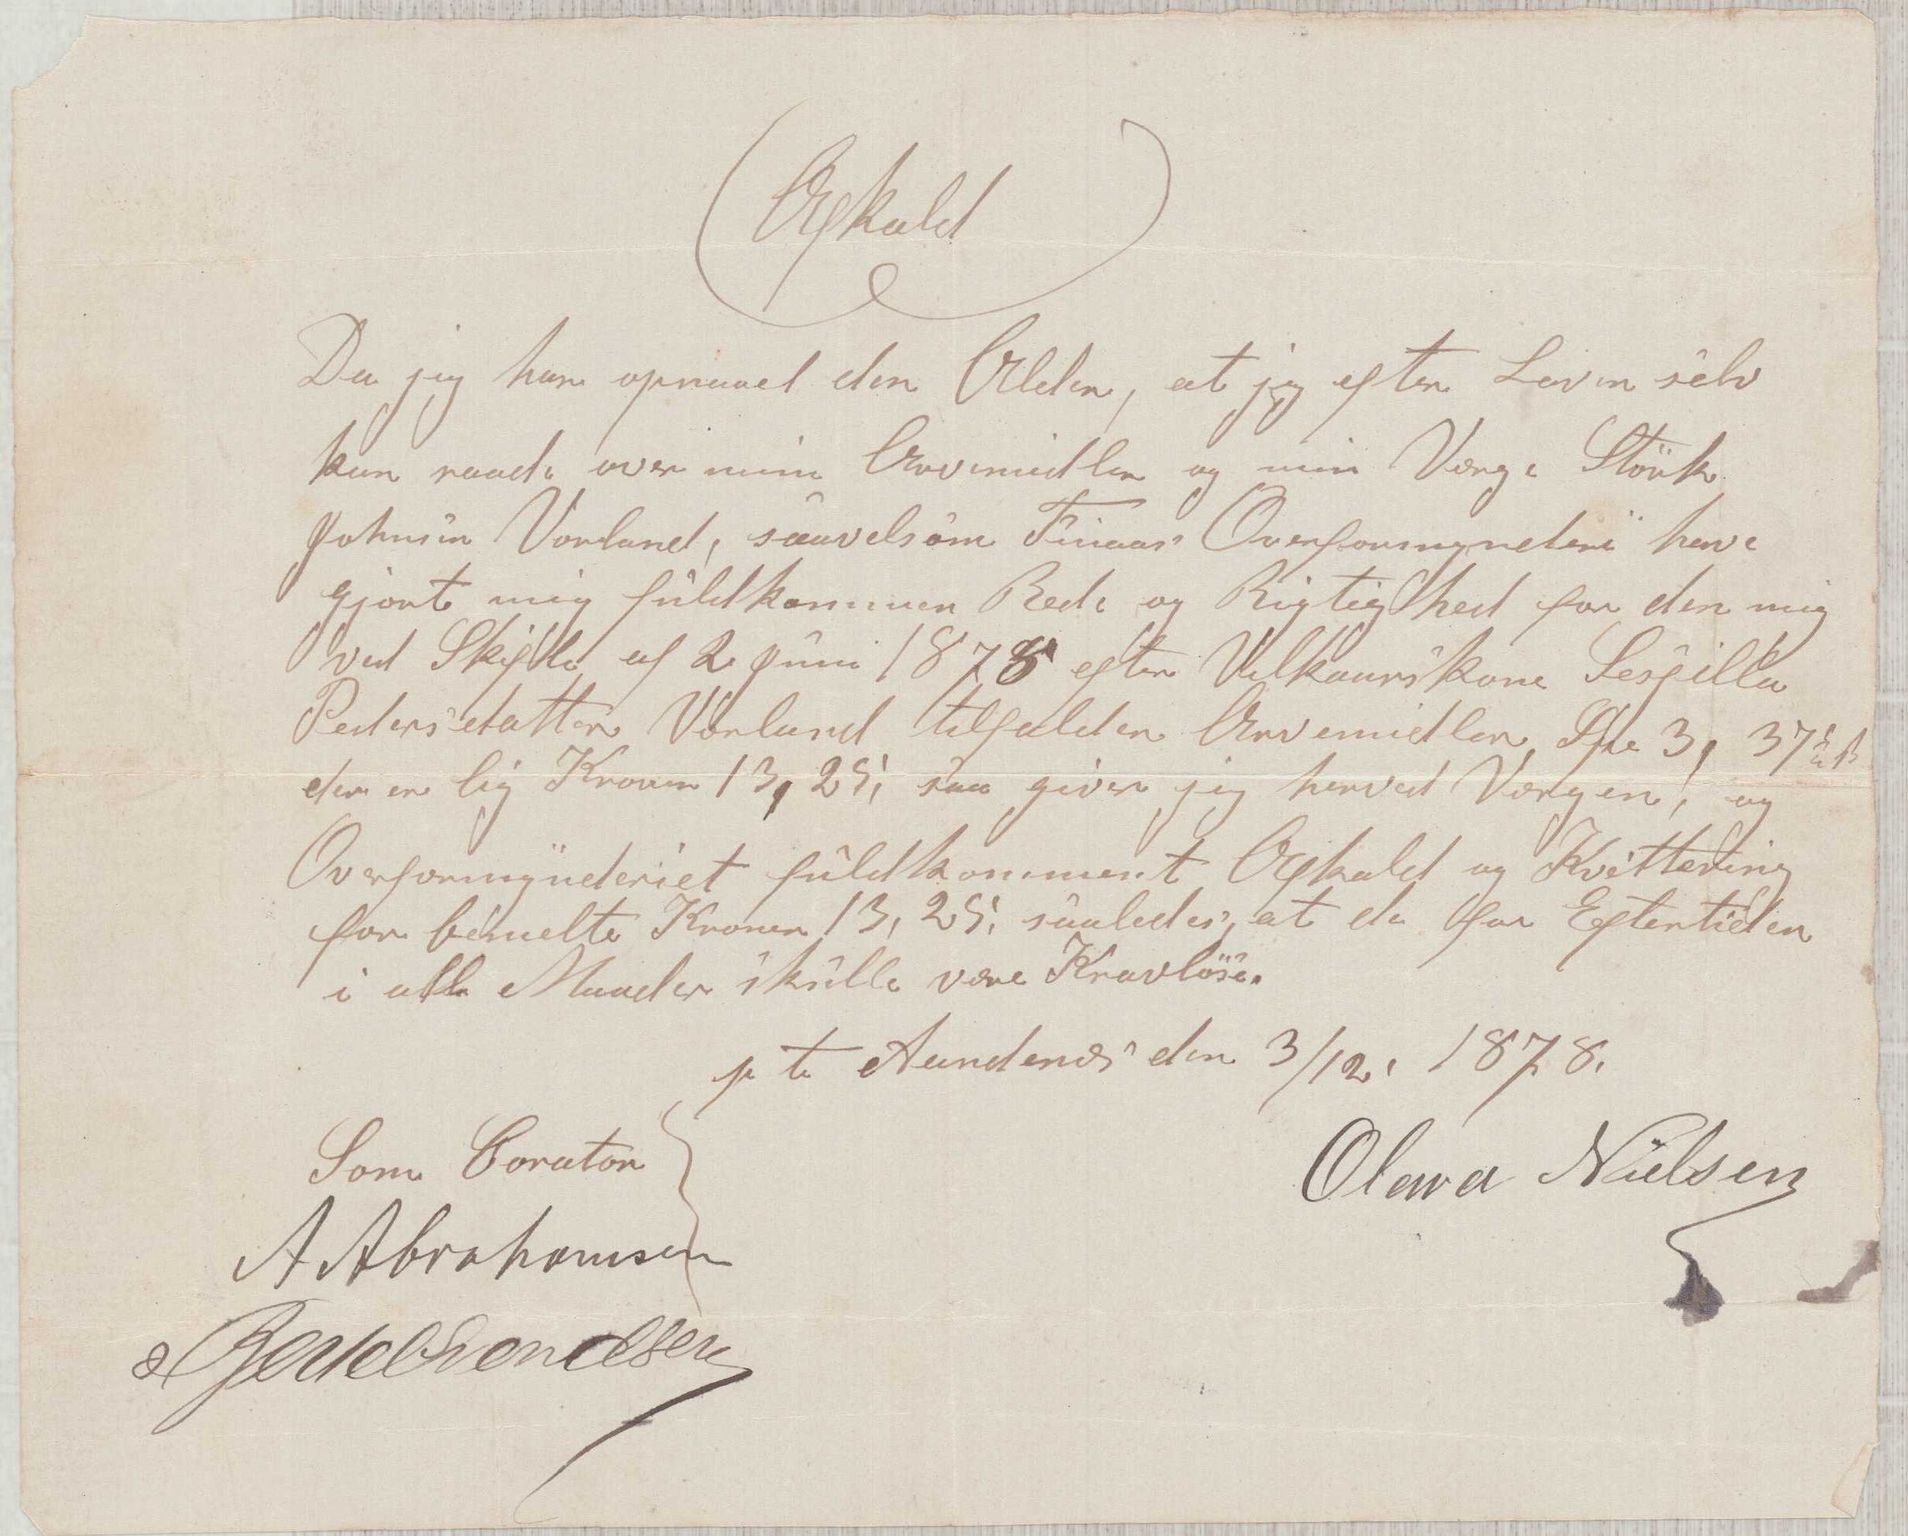 Afkald
Da jeg har opnaaet den Alder, at jeg efter Loven selv
kan raade over mine Arvemidler og min Værge Störk
Johnsen Vorland, saavelsom Finaas Overformynderi have
gjort mig fuldkommen Rede og Rigtighed for den mig
ved Skifte af 2 Juni 1878 efter Vilkaarskone Sesjilla
Pedersdatter Vorland tilfalden Arvemidler Spe 3, 37
der er lig Kroner 13,25, saa giver jeg herved Værgen, og
Overformynderiet fuldkomment Afkald og Kvittering
for bemelte Kroner 13,25, saaledes, at de for Eftertiden
i alle Maader skulle være Kravlöse.
p t Aandenes den 3/12. 1878.
Som Corator
Olava Nielsen
A Abrahamsen